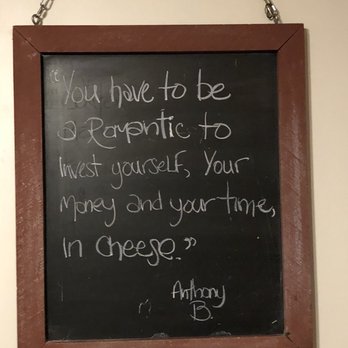 "You have to be
a Romantic to
Invest yourself, Your
Money and your time,
In Cheese."
Anthony
B.